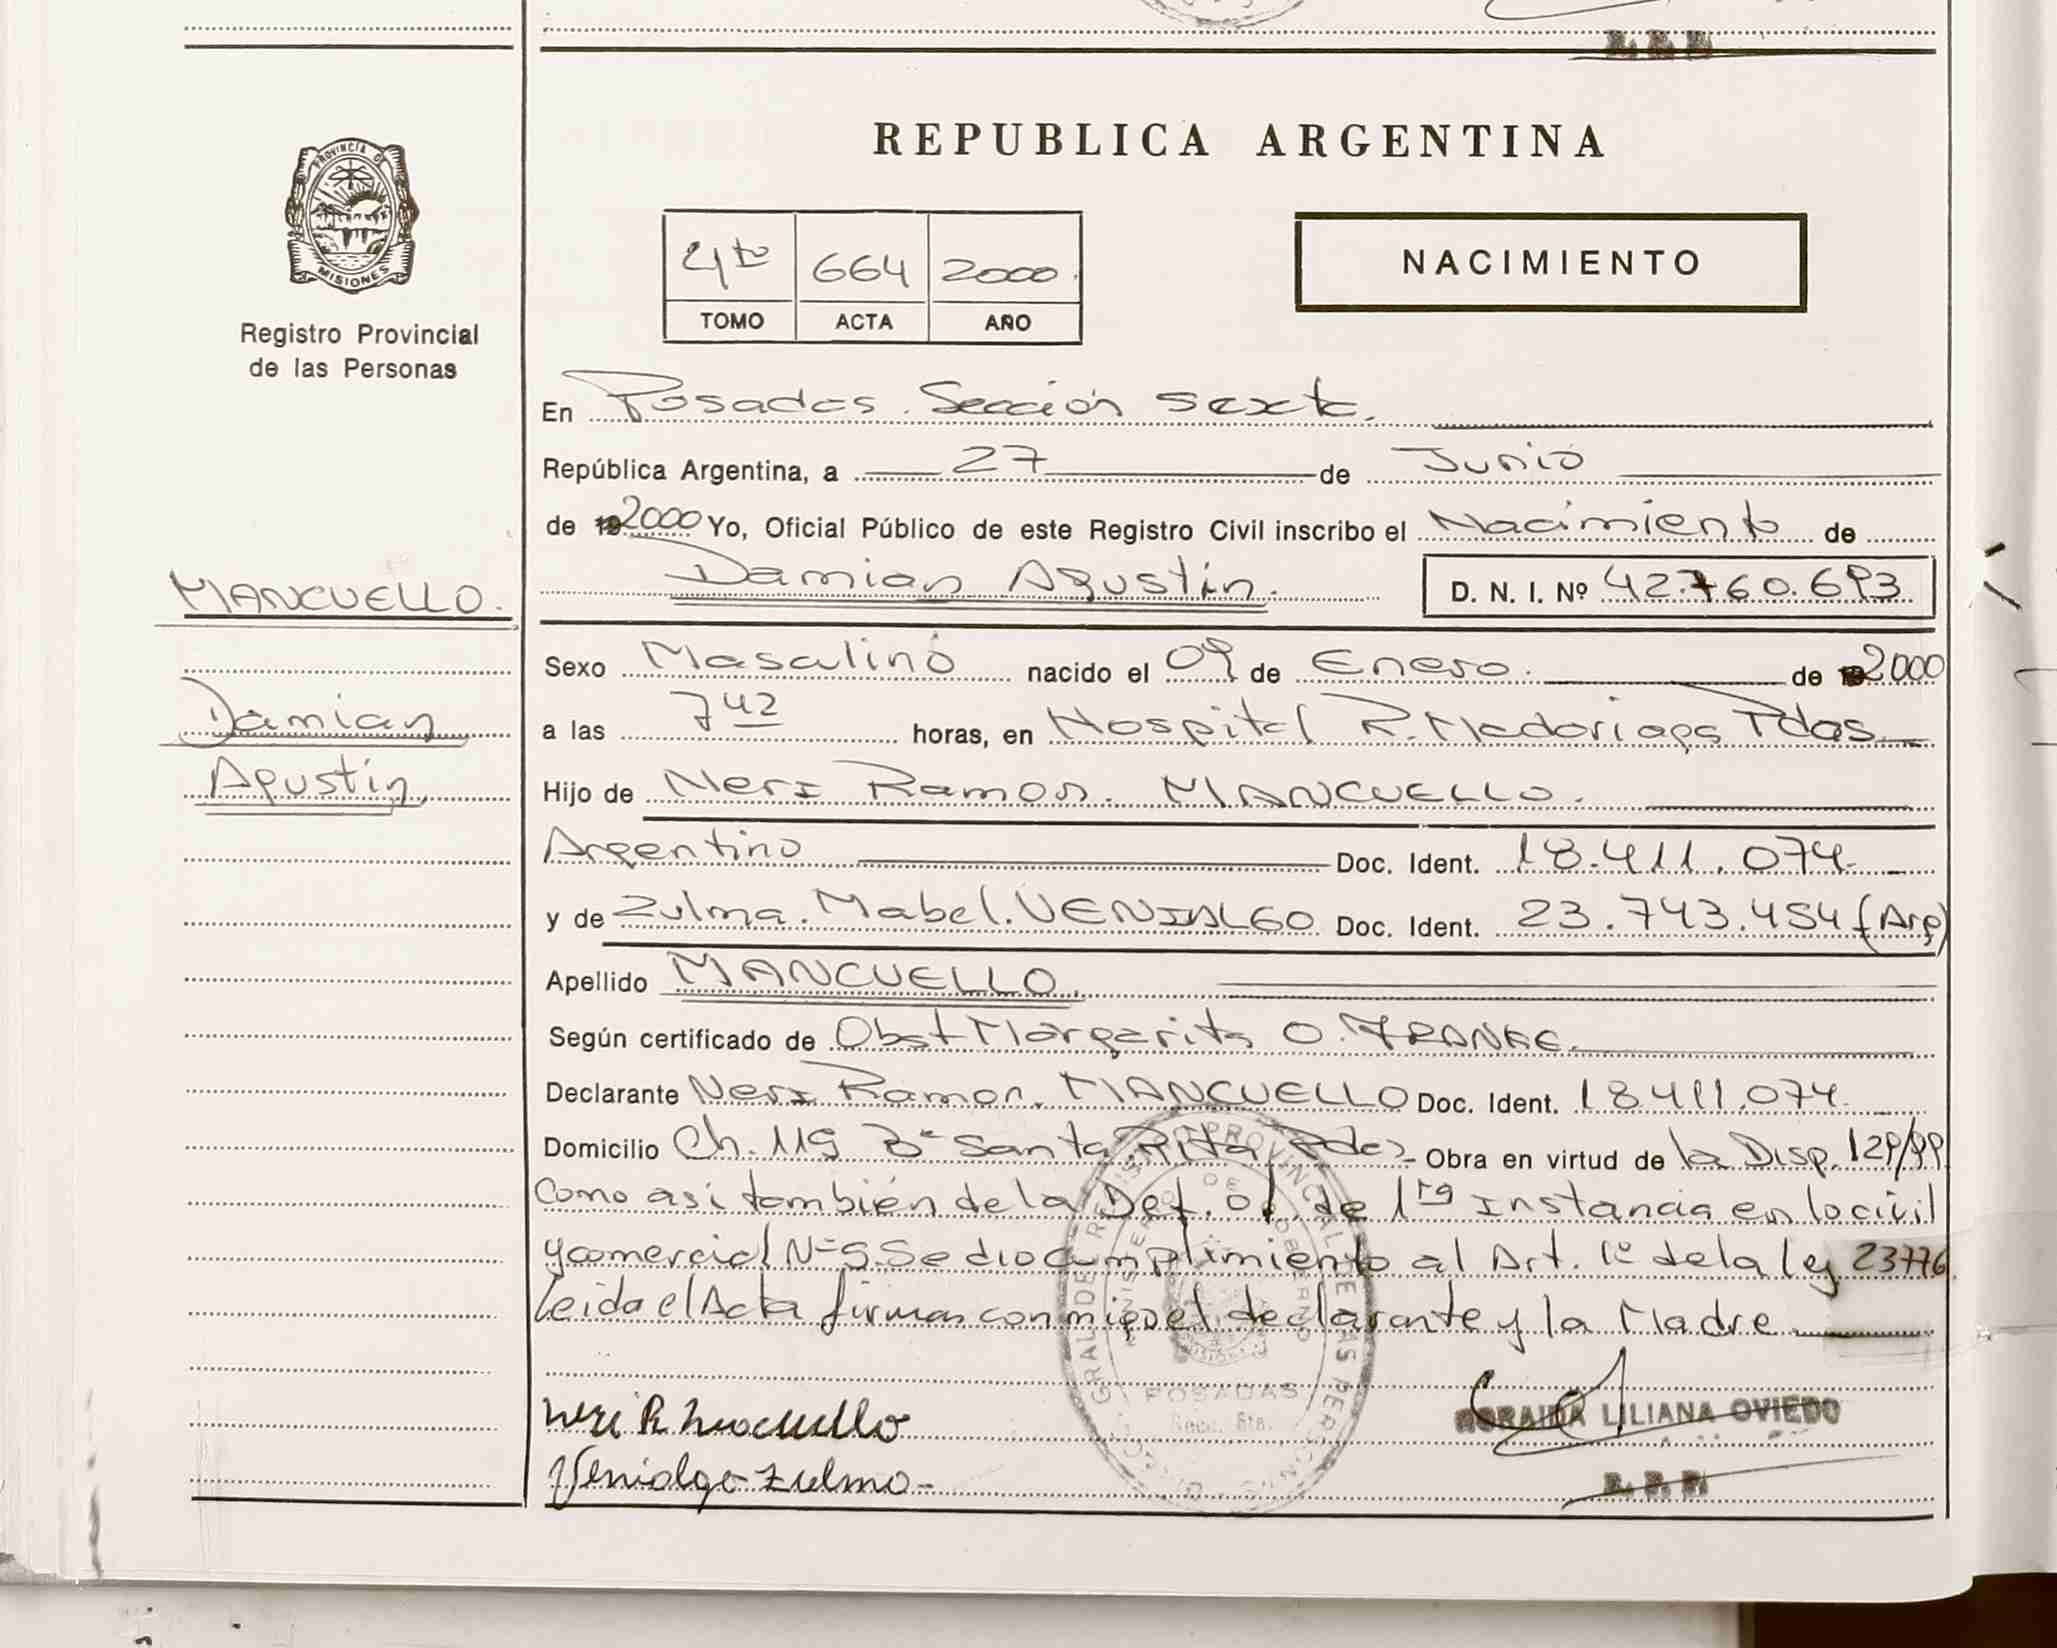 REPUBLICA ARGENTINA
PROVINCIA DE MISIONES
Registro Provincial
de las Personas
4to 664 2000
TOMO ACTA AÑO
NACIMIENTO
En Posadas Sección Sexta.
República Argentina, a 27 de Junio
de 2000 Yo, Oficial Público de este Registro Civil inscribo el Nacimiento de
Damian Agustín. D. N. I. Nº 42.760.693
MANCUELLO.
Damian
Agustín
Sexo Masculino nacido el 09 de Enero de 2000
a las 7 42 horas, en Hospital R. Madariaga Pdas
Hijo de Neri Ramon. MANCUELLO.
Argentino Doc. Ident. 18.411.074
y de Zulma. Mabel. VENIALGO Doc. Ident. 23.743.454 (Arg)
Apellido MANCUELLO.
Según certificado de Obst Margarita O. FRANKE.
Declarante Neri Ramon. MANCUELLO Doc. Ident. 18411.074
Domicilio Ch. 119 Bº Santa Rita Pdas Obra en virtud de la Disp. 129/99
como asi también de la Def. Of. de 1ra Instancia en lo civil
y comercial Nº 5. Se dio cumplimiento al Art. 1º de la ley 23776
Leida el Acta firman conmigo el declarante y la Madre.
Neri R Mancuello
Venialgo Zulma
LILIANA OVIEDO
POSADAS